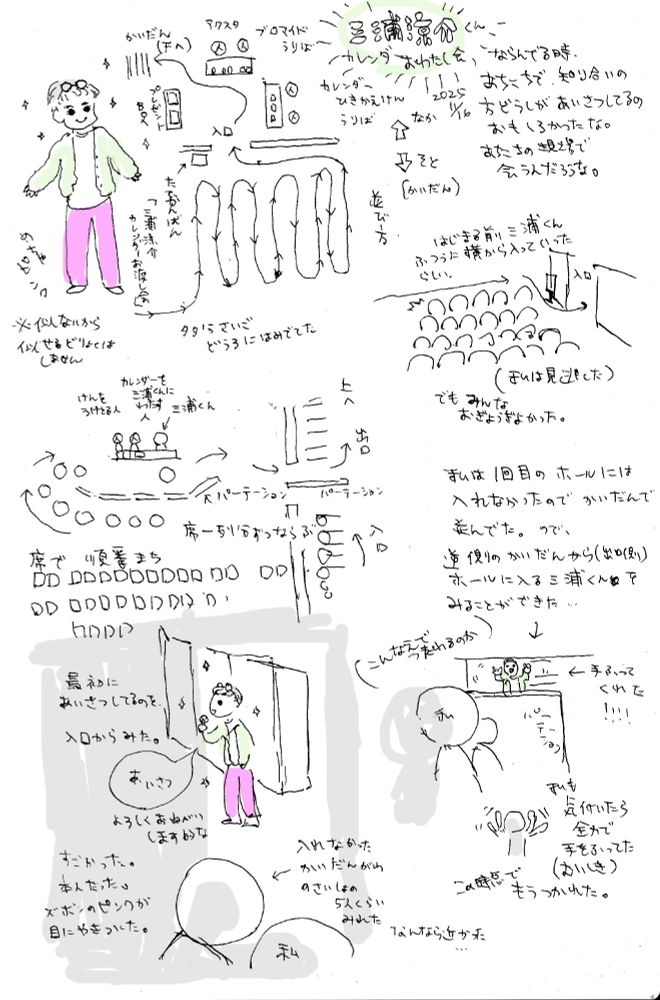 三浦涼介くん
カレンダーおわたし会
2025
11/16
ならんでる時、
あちこちで 知り合いの
方どうしがあいさつしてるの
おもしろかったな。
あちこちの現場で
会うんだろうな。
かいだん
(下へ)
アクスタ
ブロマイド
うりば
プレゼント
BOX
カレンダー
ひきかえけん
うりば
入口
なか
そと
(かいだん)
並び方
たてかんばん
「三浦涼介
カレンダーお渡し会」
めっちゃピンク
※似てないから
似せるどりょくは
しません
さいご
どうろにはみでてた
はじまる前 三浦くん
ふつうに横から入っていった
らしい。
入口
(私は見逃した)
でもみんな
おぎょうぎよかった。
けんを
うけとる人
カレンダーを
三浦くんに
わたす
人
三浦くん
パーテーション
パーテーション
上へ
出口
入口
席一列分ずつならぶ
席で 順番まち
私は1回目のホールには
入れなかったので かいだんで
並んでた。ので、
逆側のかいだんから(出口側)
ホールに入る三浦くんを
みることができた…
最初に
あいさつしてるのを、
入口からみた。
あいさつ
よろしくおねがい
します的な
こんなんで
つたわるのか
手ふって
くれた
!!!!
私
パーテーション
私も
気付いたら
全力で
手をふってた
(むいしき)
この時点で
もうつかれた。
すごかった。
本人だった。
ズボンのピンクが
目にやきついた。
入れなかった
かいだんがわ
のさいしょの
5人くらい
みれた
私
なんなら近かった
…